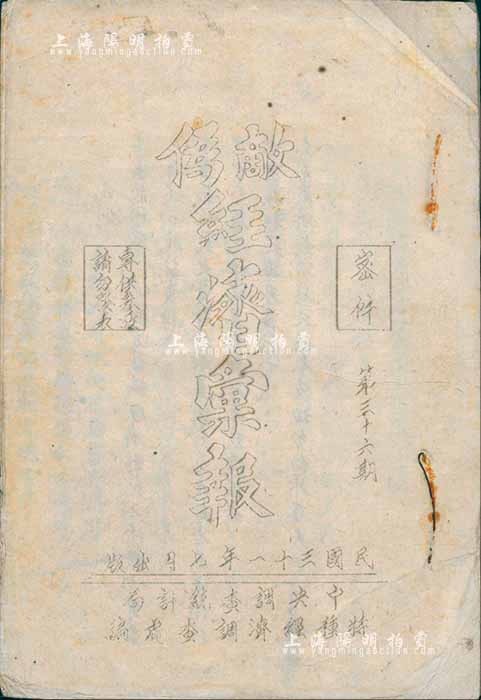 上海陽明拍賣
www.yangmingauction.com
敵偽
經濟彙報
密件
專供參考
請勿發表
第三十六期
民國三十一年七月出版
中央調查統計局
特種經濟調查處編
上海陽明拍賣
www.yangmingauction.com
上海陽明拍賣
www.yangmingauction.com